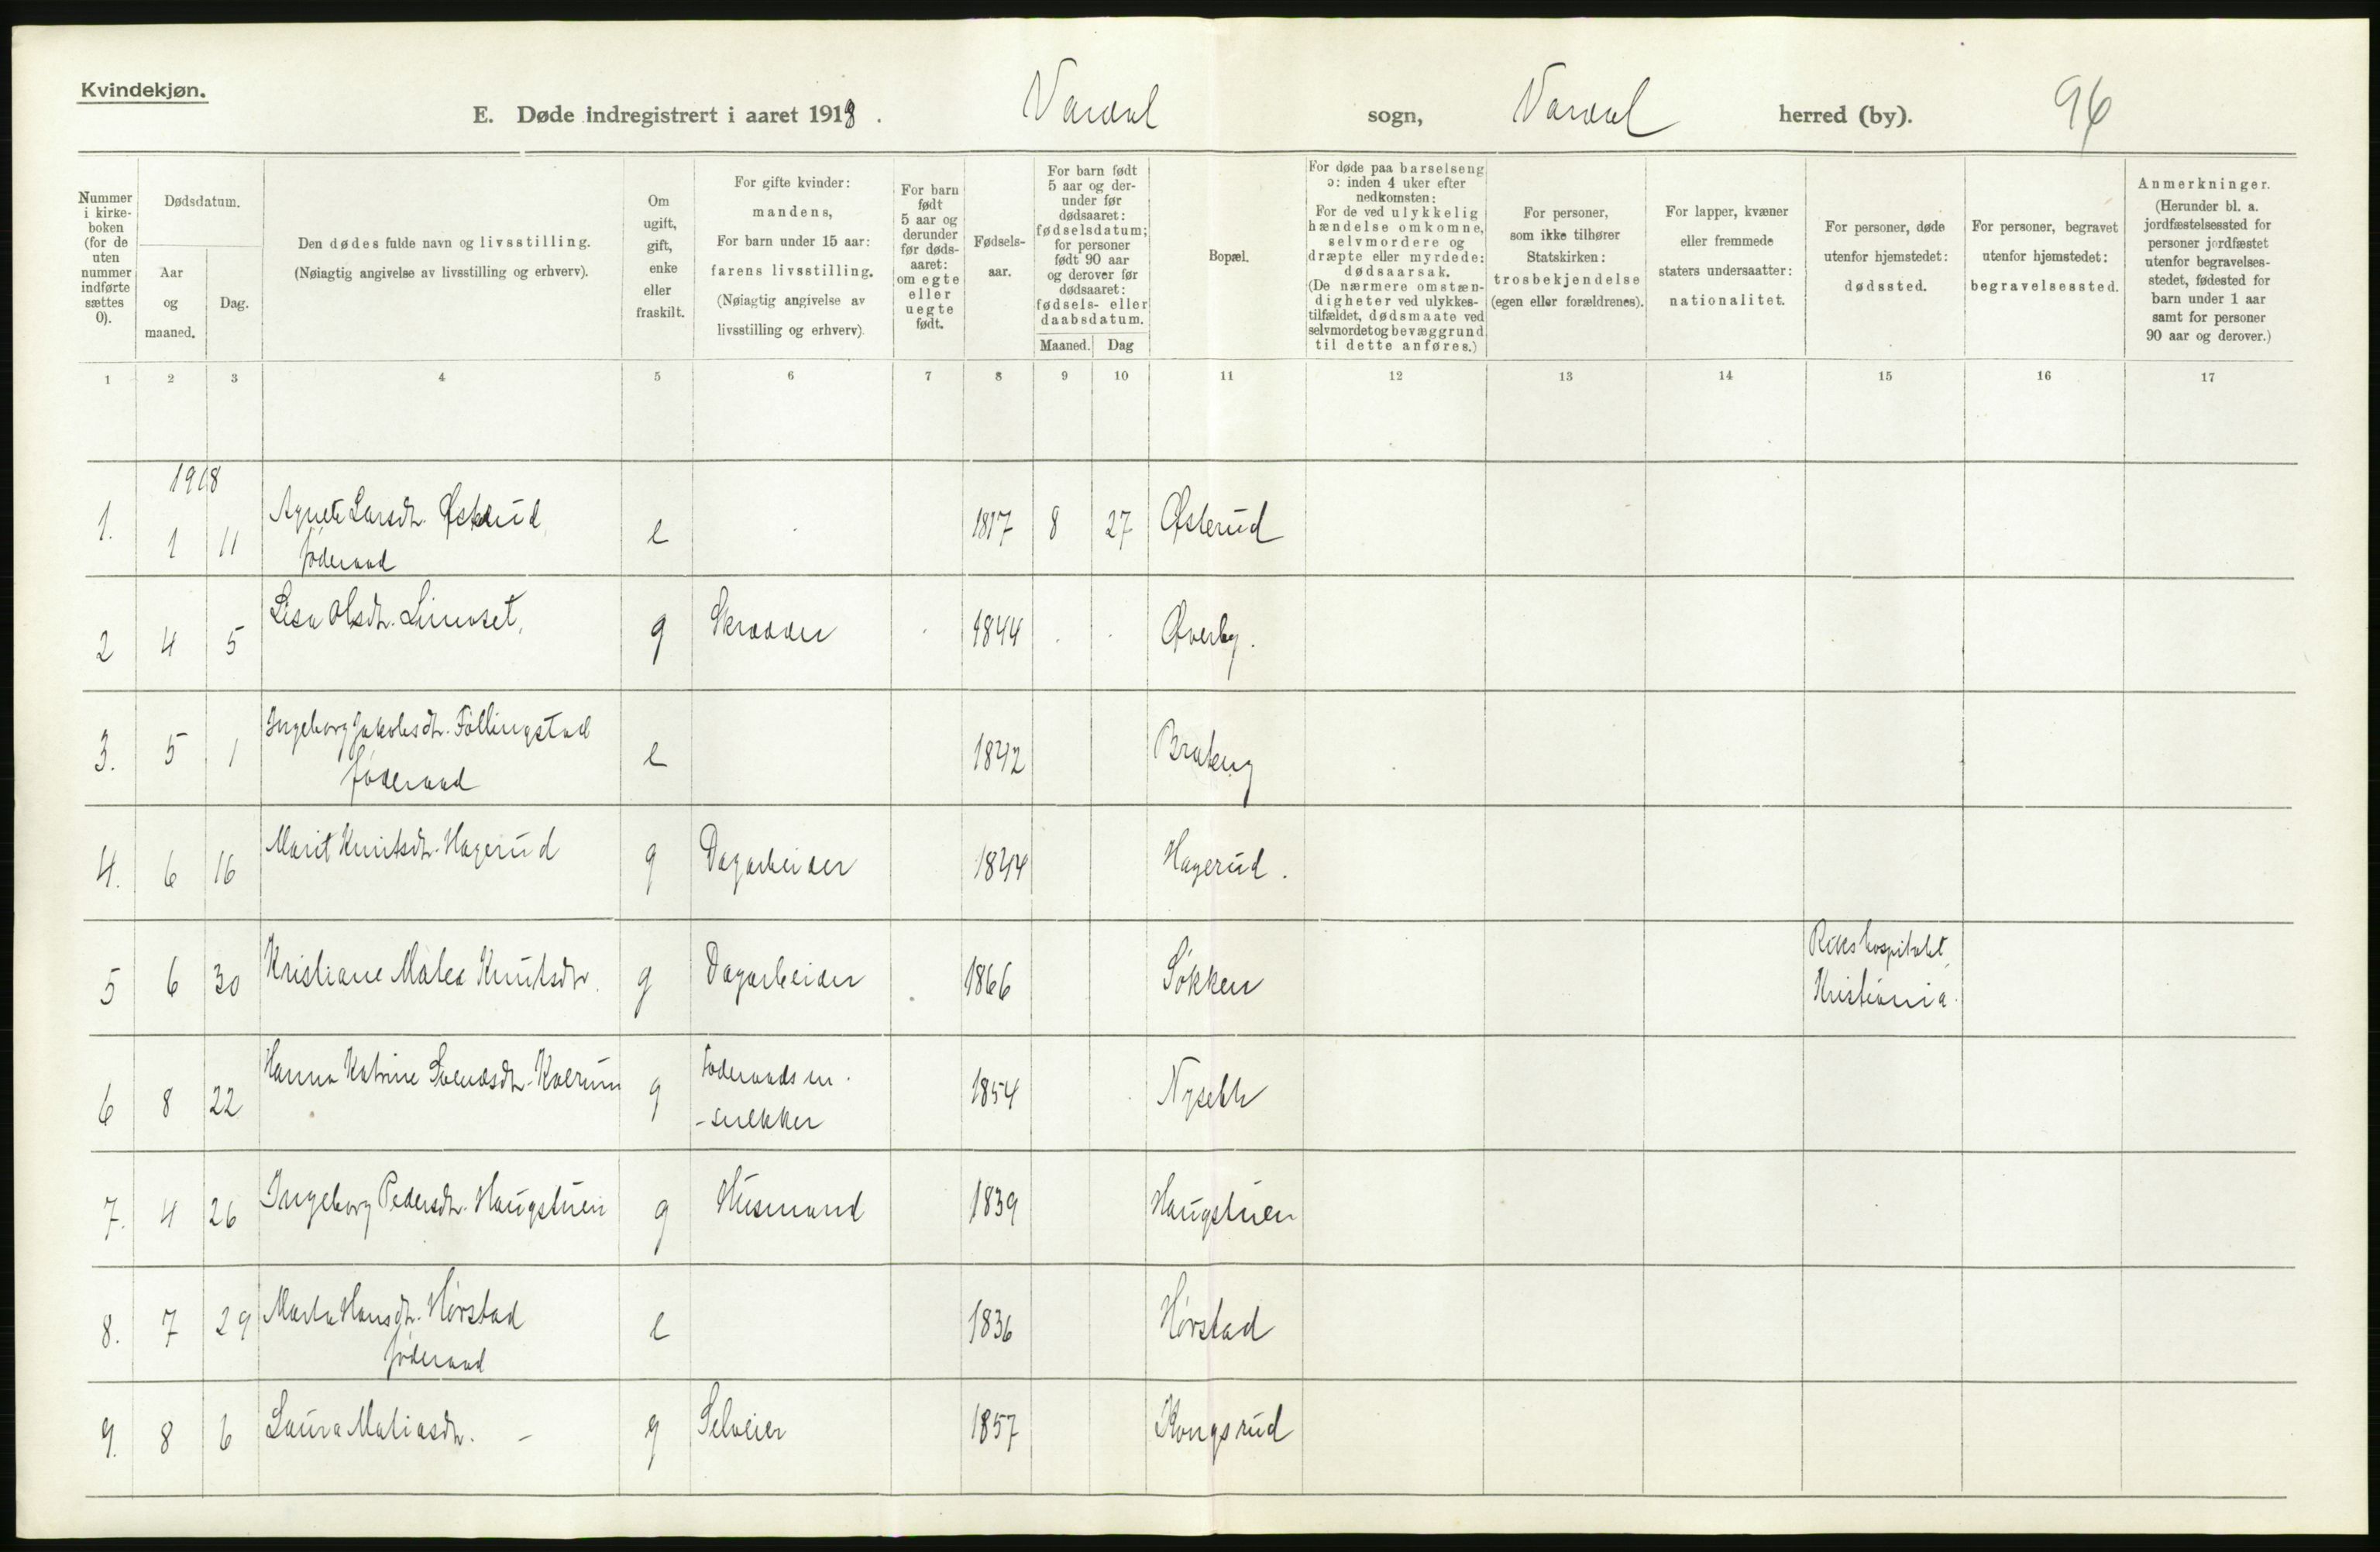 Kvindekjøn.
E. Døde indregistrert i aaret 1918. Vardal sogn, Vardal herred (by). 96
Nummer i kirke-boken (for de uten nummer indførte sættes 0).
Dødsdatum.
Aar og maaned.
Dag.
Den dødes fulde navn og livsstilling.
(Nøiagtig angivelse av livsstilling og erhverv).
Om ugift, gift, enke eller fraskilt.
For gifte kvinder: mandens,
For barn under 15 aar: farens livsstilling.
(Nøiagtig angivelse av livsstilling og erhverv).
For barn født 5 aar og derunder før døds-aaret: om egte eller uegte født.
Fødsels-aar.
For barn født 5 aar og der-under før dødsaaret: fødselsdatum; for personer født 90 aar og derover før dødsaaret: fødsels- eller daabsdatum.
Maaned. Dag
Bopæl.
For døde paa barselseng ɔ: inden 4 uker efter nedkomsten:
For de ved ulykkelig hændelse omkomne, selvmordere og dræpte eller myrdede: dødsaarsak.
(De nærmere omstæn-digheter ved ulykkes-tilfældet, dødsmaate ved selvmordet og bevæggrund til dette anføres.)
For personer, som ikke tilhører Statskirken: trosbekjendelse (egen eller forældrenes).
For lapper, kvæner eller fremmede staters undersaatter: nationalitet.
For personer, døde utenfor hjemstedet: dødssted.
For personer, begravet utenfor hjemstedet: begravelsessted.
Anmerkninger.
(Herunder bl. a. jordfæstelsessted for personer jordfæstet utenfor begravelses-stedet, fødested for barn under 1 aar samt for personer 90 aar og derover.)
1 2 3 4 5 6 7 8 9 10 11 12 13 14 15 16 17
1918
1. 1 11 Agnete Larsdtr. Østerud, føderaad e 1817 8 27 Østerud
2 4 5 Lisa Olsdtr. Limoset, g Skrædder 1844 Øverby.
3. 5 1 Ingeborg Jakobsdtr. Føllingstad føderaad e 1842 Brateng
4. 6 16 Marit Knutsdtr. Hagerud g Dagarbeider 1844 Hagerud.
5 6 30 Kristiane Matea Knutsdtr. g Dagarbeider 1866 Søkken Rikshospitalet, Kristiania.
6 8 22 Hanna Katrine Svendsdtr. Kværum g føderaadsm. - snekker 1854 Nyseth
7. 4 26 Ingeborg Pedersdtr. Haugstuen g Husmand 1839 Haugstuen
8. 7 29 Marta Hansdtr. Hørstad føderaad e 1836 Hørstad
9. 8 6 Laura Matiasdtr. - g Selveier 1857 Kongsrud